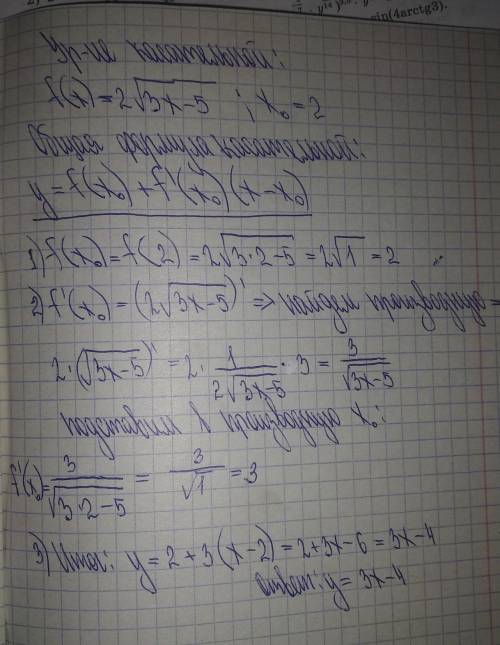 sin(4arctg3).
Ур-ие касательной:
f(x)=2√3x-5 ; x₀=2
Общая формула касательной:
y=f(x₀)+f'(x₀)(x-x₀)
1) f(x₀)=f(2)=2√3·2-5=2√1=2
2) f'(x₀)=(2√3x-5)' => найдем производную =
2·(√3x-5)'=2·1/2√3x-5·3=3/√3x-5
подставим в производную x₀:
f'(x₀)=3/√3·2-5=3/√1=3
3) Итог: y=2+3(x-2)=2+3x-6=3x-4
ответ: y=3x-4